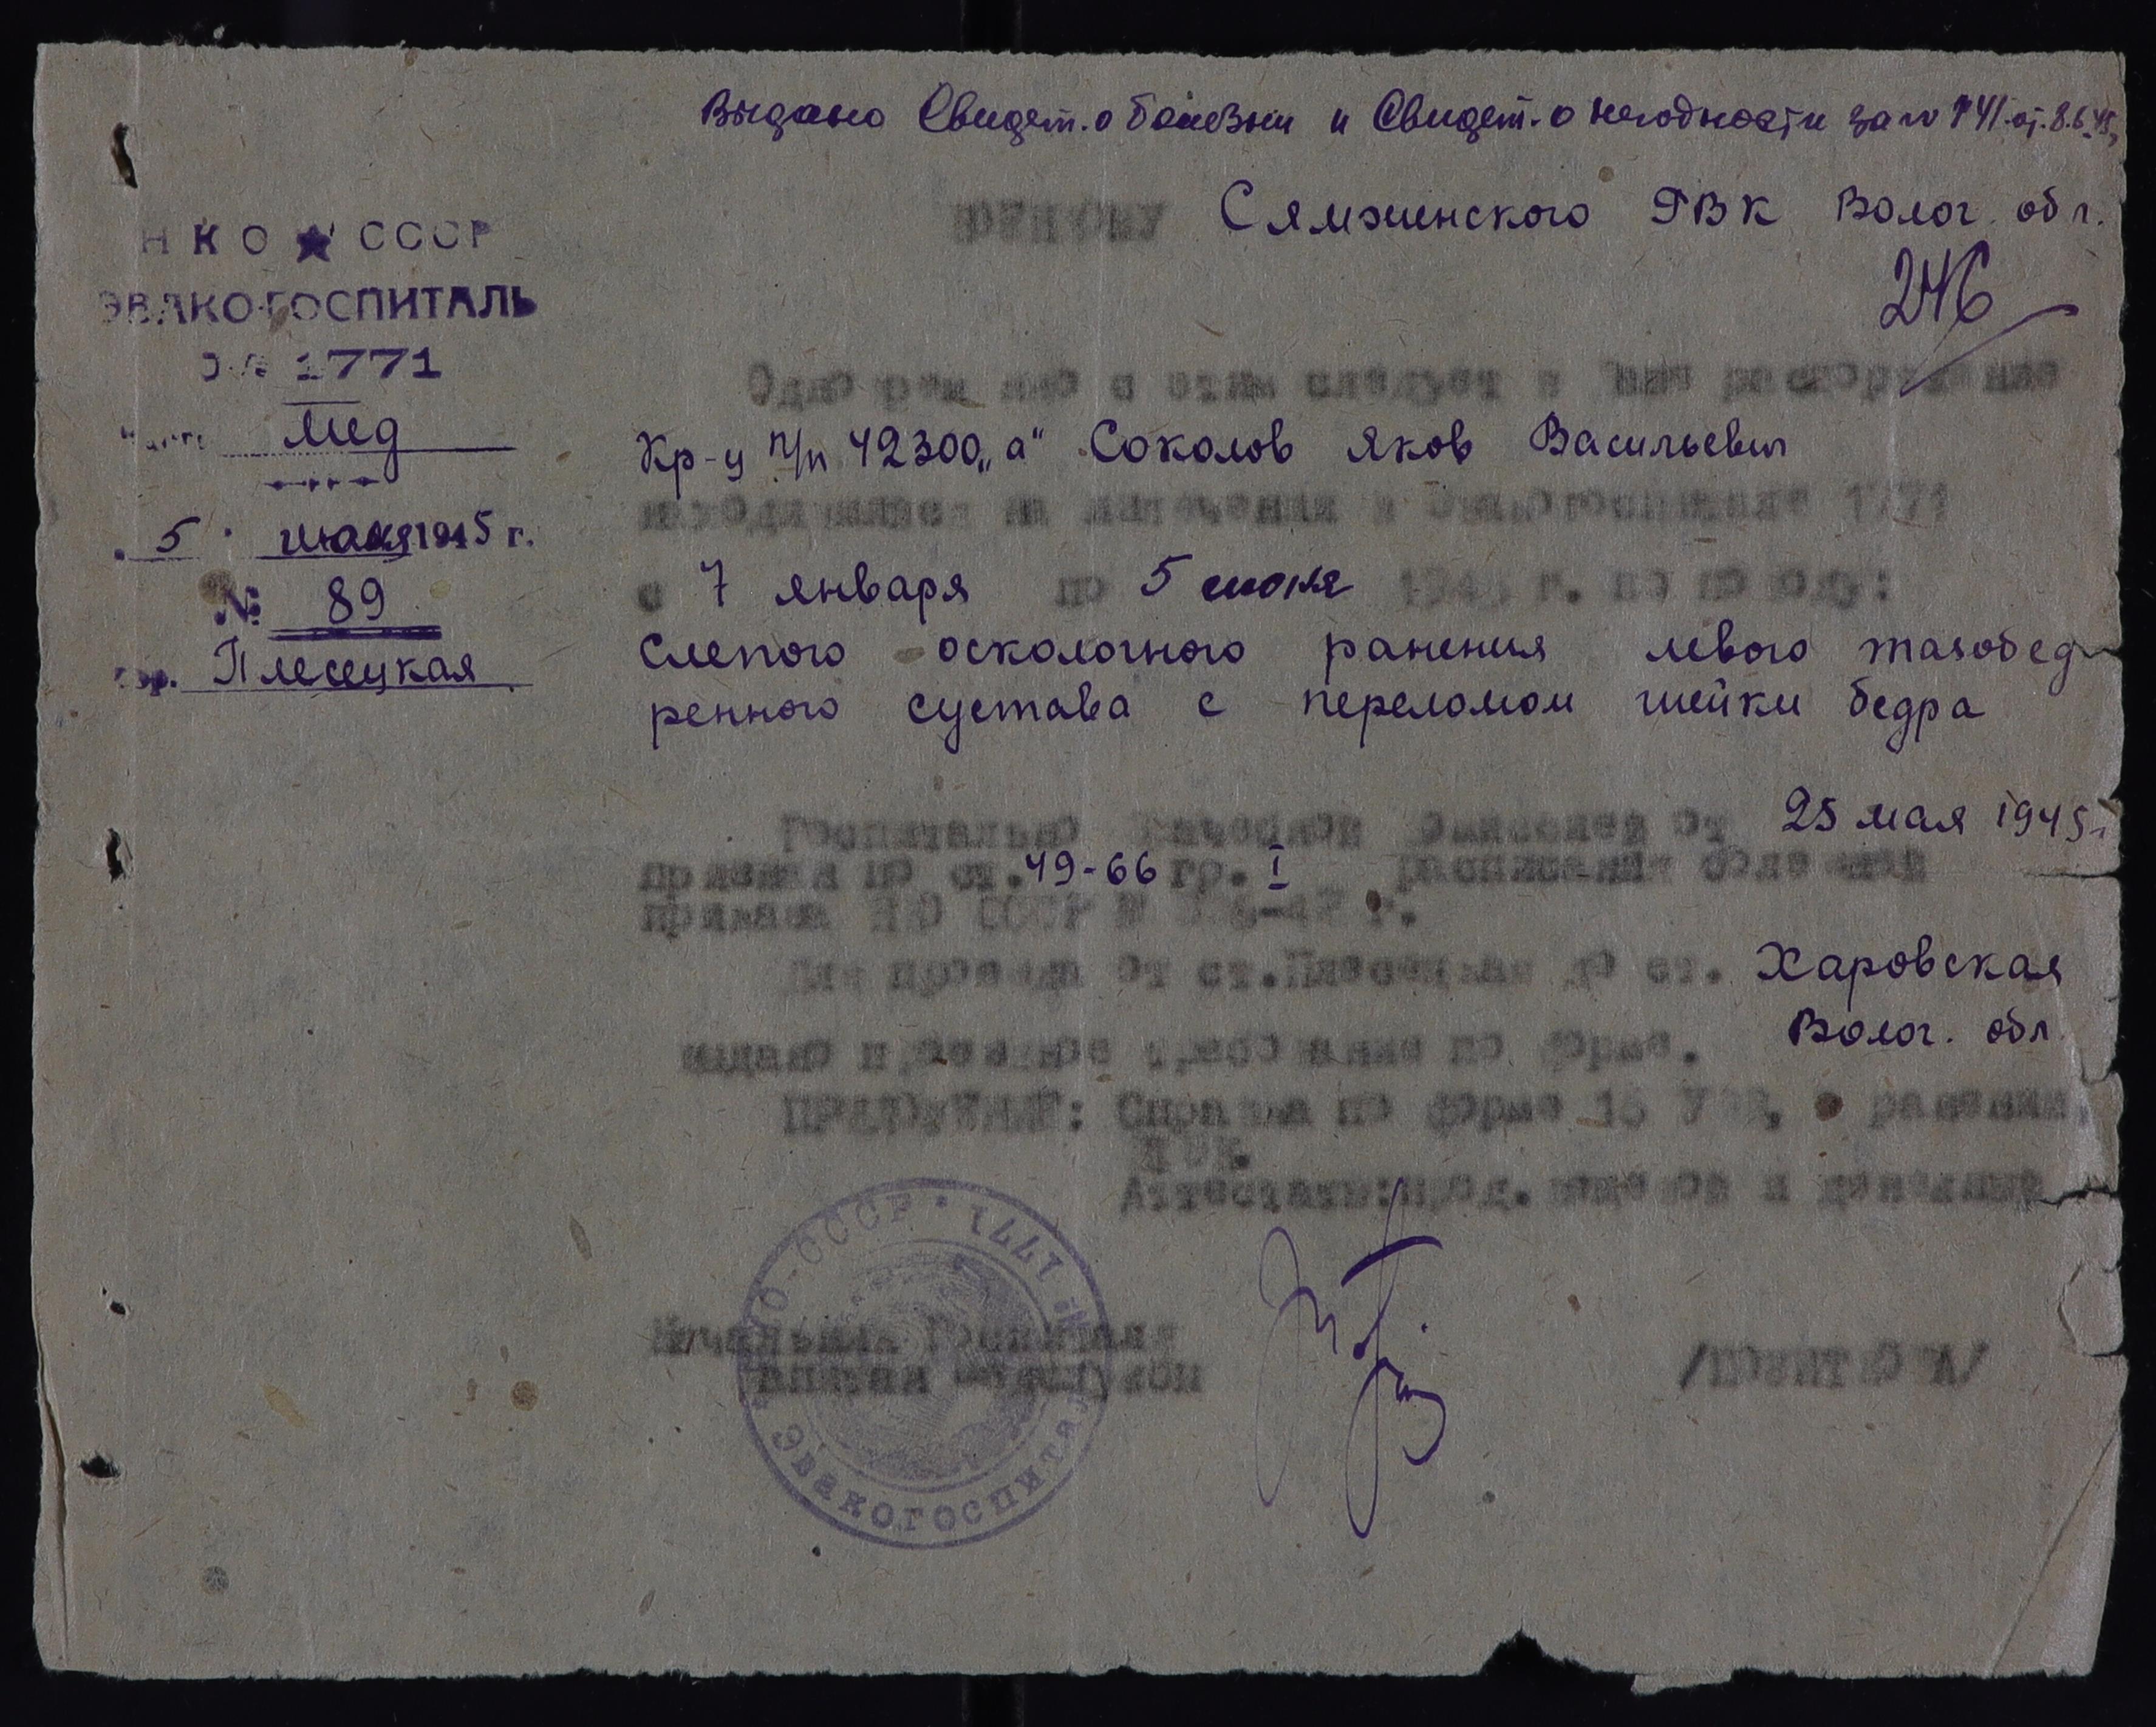 Выдано Свидет. о болезни и Свидет. о негодности за № 741 от 8.6.45
Сямженского РВК Волог. обл.
246
НКО ★ СССР
ЭВАКОГОСПИТАЛЬ
№ 1771
Часть мед
5 июня 1945 г.
№ 89
гор. Плесецкая
следует в
Кр-ц п/п 42300 „а" Соколов Яков Васильевич
находившийся на излечении в Эвакогоспитале 1771
с 7 января по 5 июня 1945 г. по поводу:
Слепого осколочного ранения левого тазобед-
ренного сустава с переломом шейки бедра
Госпитальной от 25 мая 1945 г.
признан по ст. 49-66 гр. I расписания болезней
приказа НКО СССР г.
Для проезда от ст. Плесецкая до ст. Харовская
Волог. обл.
выдано требование по форме.
ПРИЛОЖЕНИЕ: Справка по форме 16 о ранении,
Аттестаты: прод. вещевой и денежный
Начальник Госпиталя
капитан мед.службы
НКО СССР • № 1771
Эвакогоспиталь